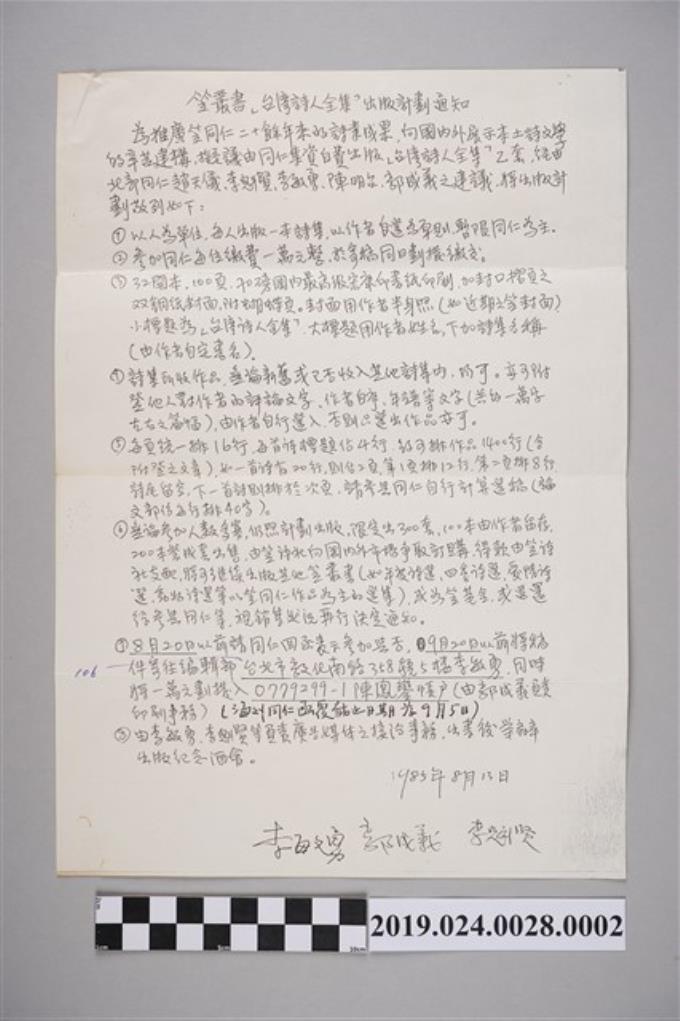 笠叢書「台湾詩人全集」出版計劃通知
為推廣笠同仁二十餘年來的詩業成果,向國內外展示本土詩文學
的辛苦建構,擬建議由同仁集資自費出版「台湾詩人全集」乙套,經由
北部同仁趙天儀、李魁賢、李敏勇、陳明台、鄭成義之建議,將出版計
劃敬列如下:
①以人為單位,每人出版一本詩集,以作者自選為原則,暫限同仁為主。
②參加同仁每位繳費一萬元整,於寄稿同日劃撥繳交。
③32開本,100頁,70磅國內最高級印書紙印刷,加封口摺頁之
双銅紙封面,附蝴蝶頁。封面用作者半身照(如近期之笠封面)
小標題為「台湾詩人全集」,大標題用作者姓名,下加詩集名稱
(由作者自定書名)。
④詩集所收作品,無論新舊或已否收入其他詩集內,均可。亦可附
登他人對作者的評論文字、作者自序、年譜等文字(共約一萬字
左右之篇幅),由作者自行選入,否則只選出作品亦可。
⑤每頁統一排16行,每首詩標題佔4行,約可排作品1400行(含
附登之文章),如一首詩有20行,則佔2頁,第1頁排12行,第二頁排8行
詩尾留空,下一首詩則排於次頁,請參與同仁自行計算選稿(論
文部份每行排40字)。
⑥無論參加人數多寡,仍照計劃出版,限定出300套,100本由作者留存,
200本整成套出售,由笠詩社向國內外市場爭取訂購,得款由笠詩
社支配,將可繼續出版其他笠叢書(如年度詩選,四季詩選,愛情詩
選,等以笠同仁作品為主的選集),或為笠基金,或退還
給參與同仁等,視銷售狀況再行決定通知。
⑦8月20日以前請同仁回函表示參加與否,9月20日以前將稿
106 件寄往編輯部台北市敦化南路358號5樓李敏勇,同時
將一萬元劃撥入0779299-1陳鳳帳戶(由鄭成義負責
印刷事務)(海外同仁函覆截止日期為9月5日)
⑧由李敏勇、李魁賢等負責廣告媒体之接洽事務,出書後舉辦
出版紀念酒會。
1985年8月13日
李敏勇 鄭成義 李魁賢
2019.024.0028.0002